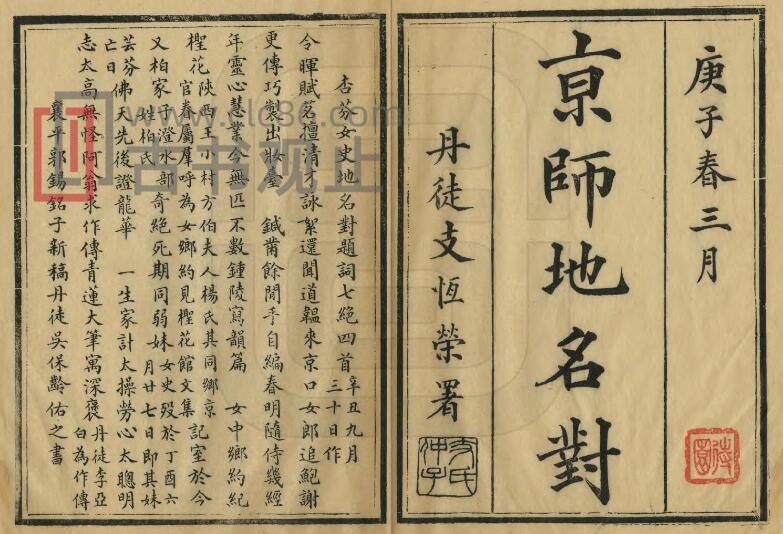 庚子春三月
京師地名對
丹徒支恆榮署
支氏仲子
杏芬女史地名對題詞七絕四首 辛丑九月三十日作
令暉賦茗擅清才詠絮還聞道韞來京口女郎追鮑謝
更傳巧製出妝臺 鍼黹餘閒手自編春明隨侍幾經
年靈心慧業今無匹不數鍾陵寫韻篇 女中鄉約紀
檉花 陝西王小村方伯夫人楊氏其同鄉京官眷屬羣呼為女鄉約見檉花館文集 記室於今
又柏家 子澄水部姓柏氏 奇絕死期同弱妹 女史歿於丁酉六月廿七日即其妹
芸芬亡日 佛天先後證龍華 一生家計太操勞心太聰明
志太高無怪阿翁求作傳青蓮大筆寓深褒 丹徒李亞白為作傳
襄平郭錫銘子新稿丹徒吳保齡佑之書